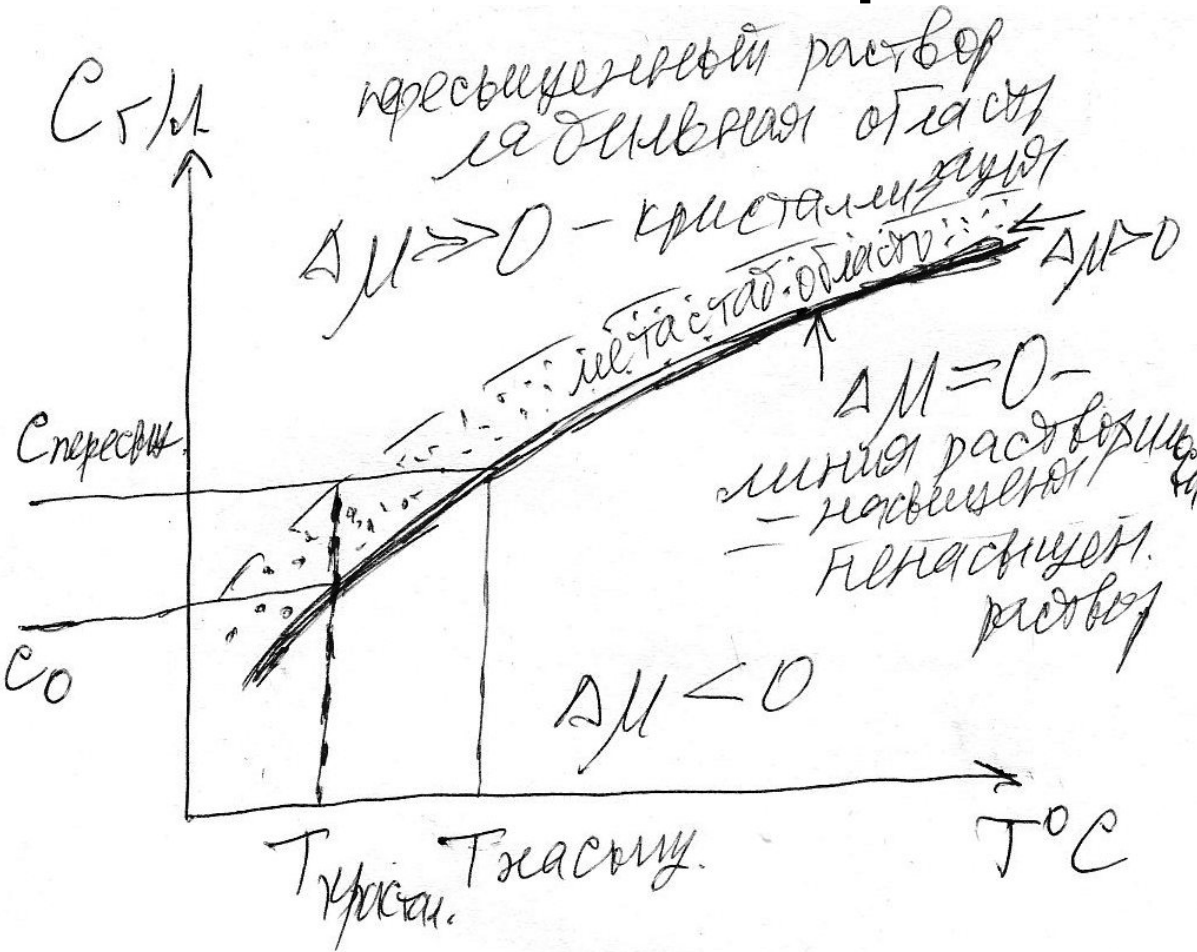 С г/л
пересыщенный раствор
лабильная область
Δμ>>0 – кристаллизация
метастаб. область
Δμ>0
Δμ=0–
линия растворимости
– насыщения
ненасыщен.
раствор
Спересыщ.
С0
Δμ<0
Ткристал.
Тнасыщ.
T°C